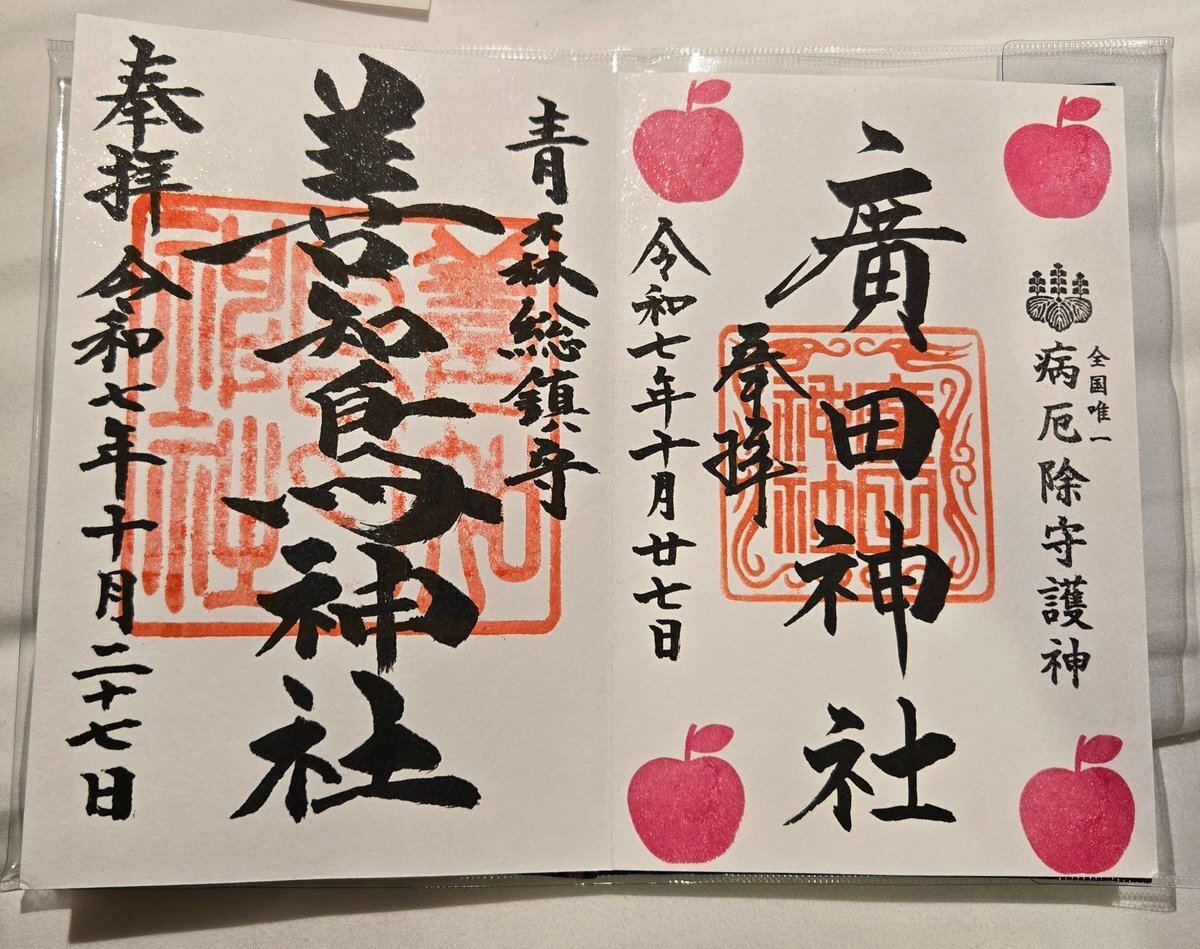 全国唯一
病厄除守護神
廣田神社
奉拝
令和七年十月廿七日
青森総鎮守
善知鳥神社
奉拝 令和七年十月二十七日